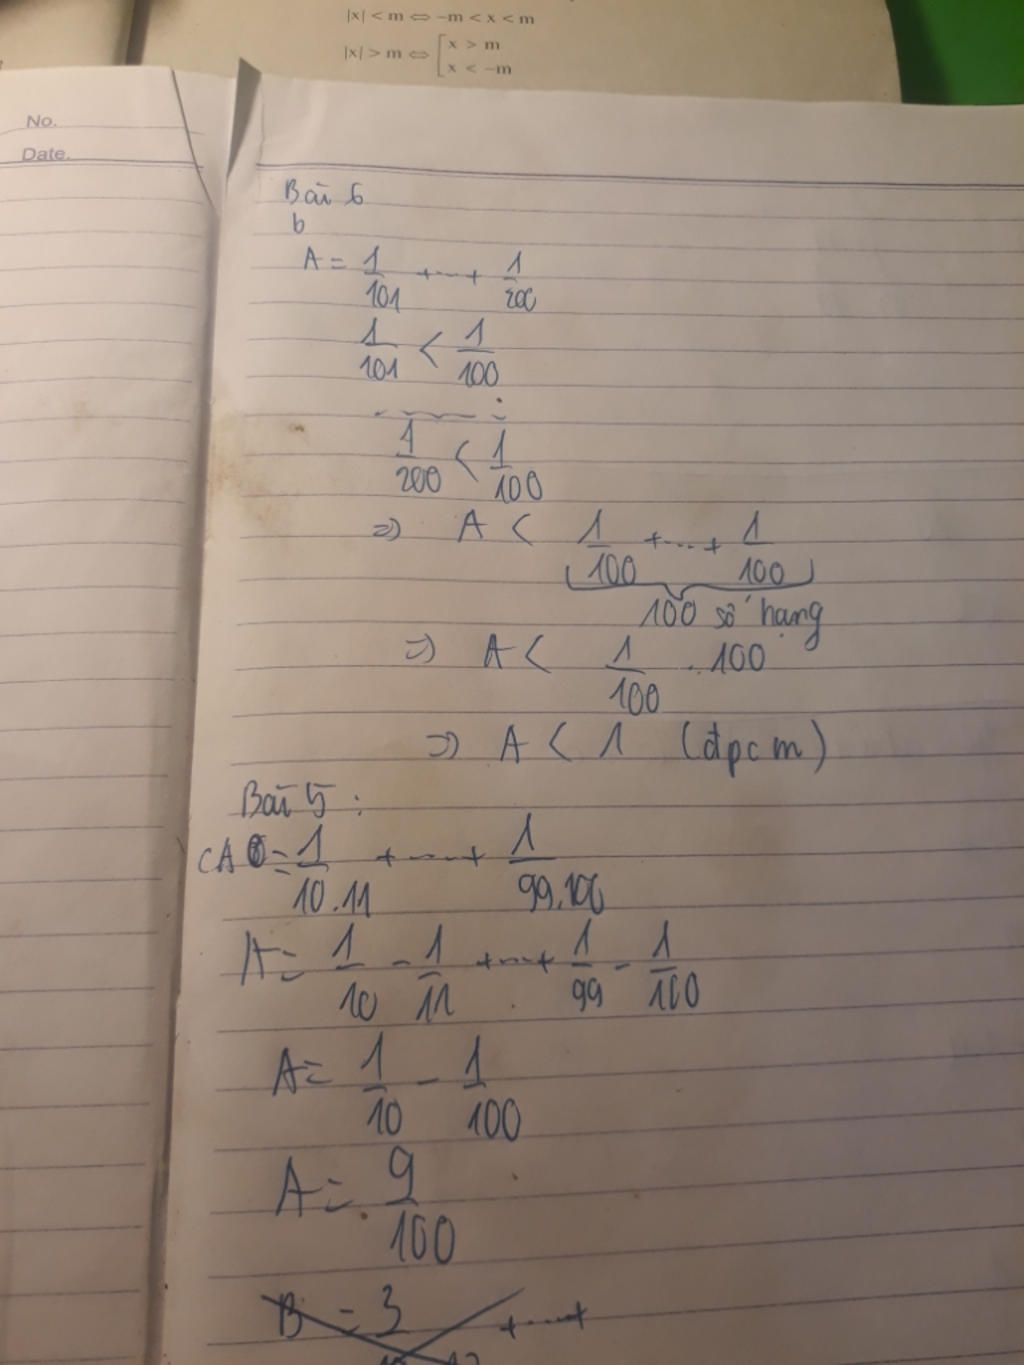 |x| < m ⇔ -m < x < m
|x| > m ⇔ [ x > m
x < -m
No.
Date.
Bài 6
b
A = 1/101 + ... + 1/200
1/101 < 1/100
1/200 < 1/100
=> A < 1/100 + ... + 1/100
100 số hạng
=> A < 1/100 . 100
=> A < 1 (đpcm)
Bài 5 :
A = 1/10.11 + ... + 1/99.100
A = 1/10 - 1/11 + ... + 1/99 - 1/100
A = 1/10 - 1/100
A = 9/100
B = 3 + ... +